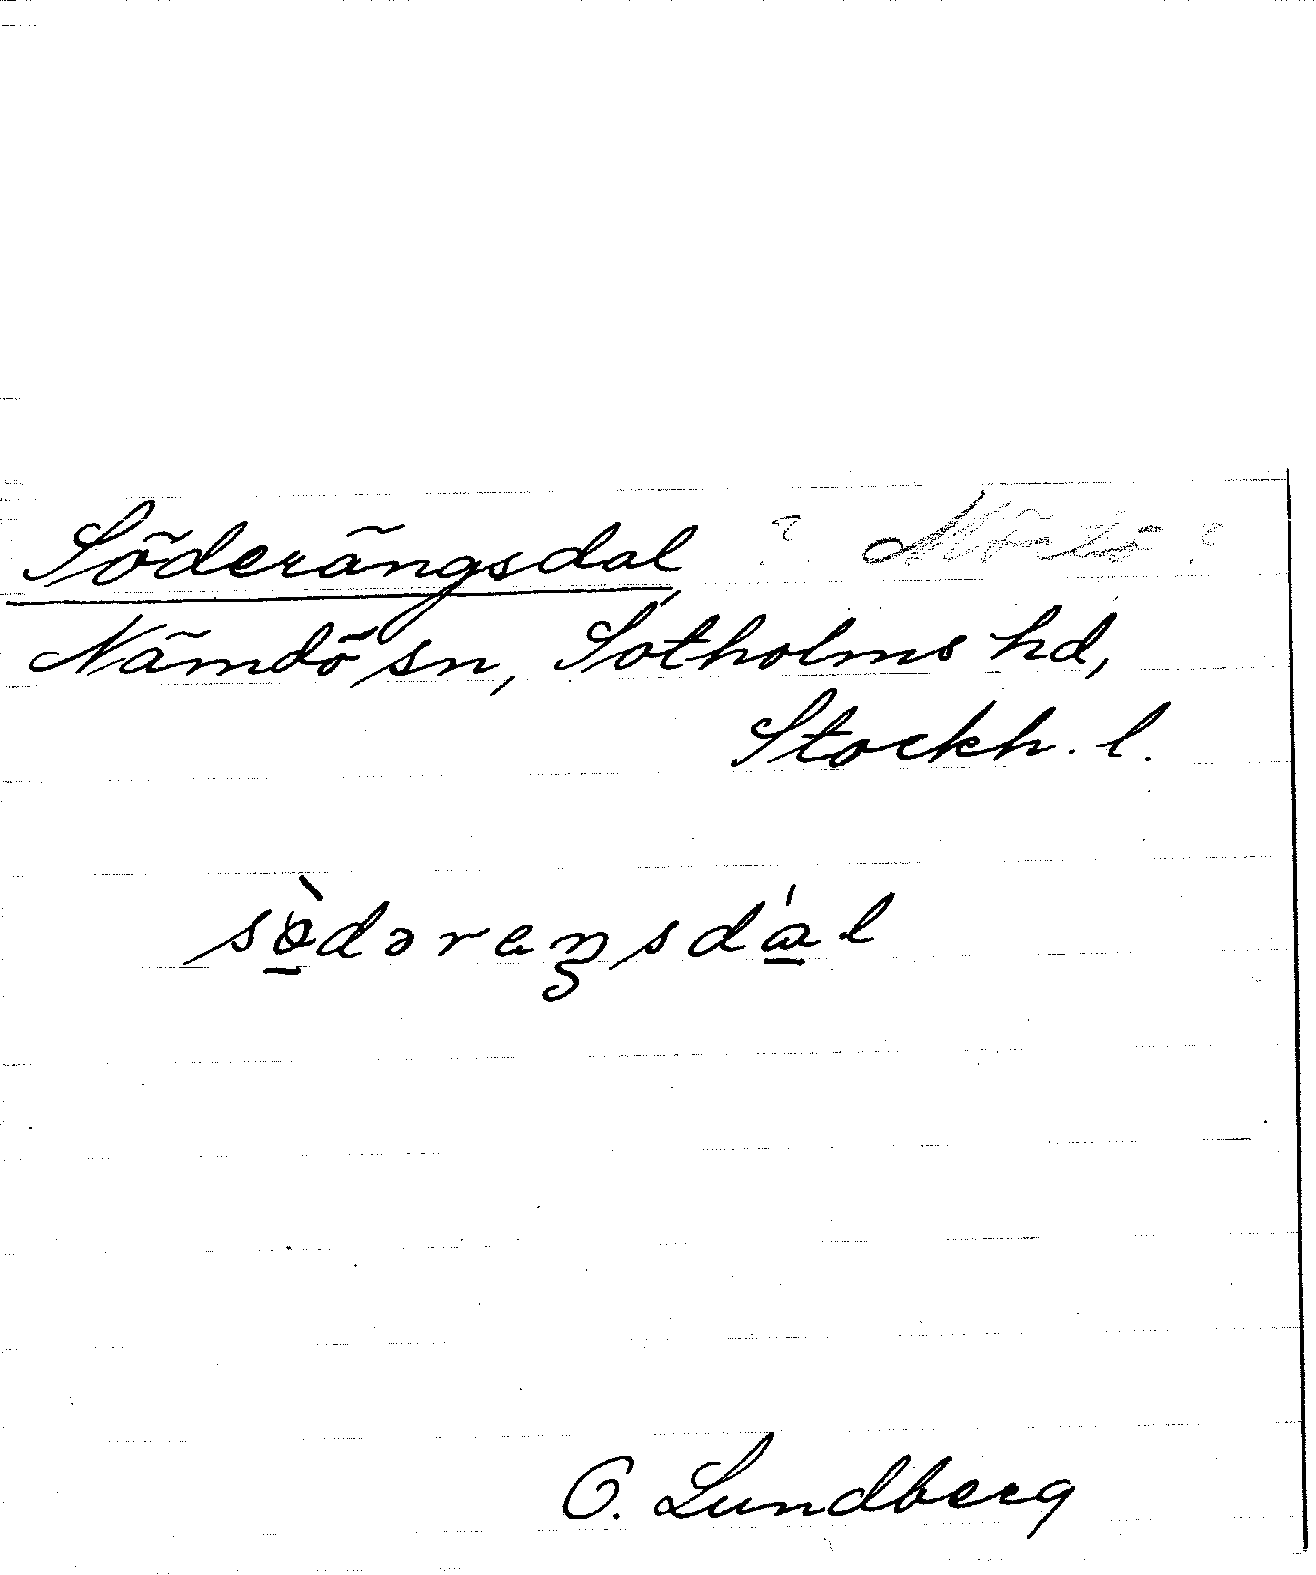 Söderängsdal ? Mörtö ?
Nämdö sn, Sotholms hd,
Stockh. l.
sö̱̀dəreŋsdá̱l
O. Lundberg